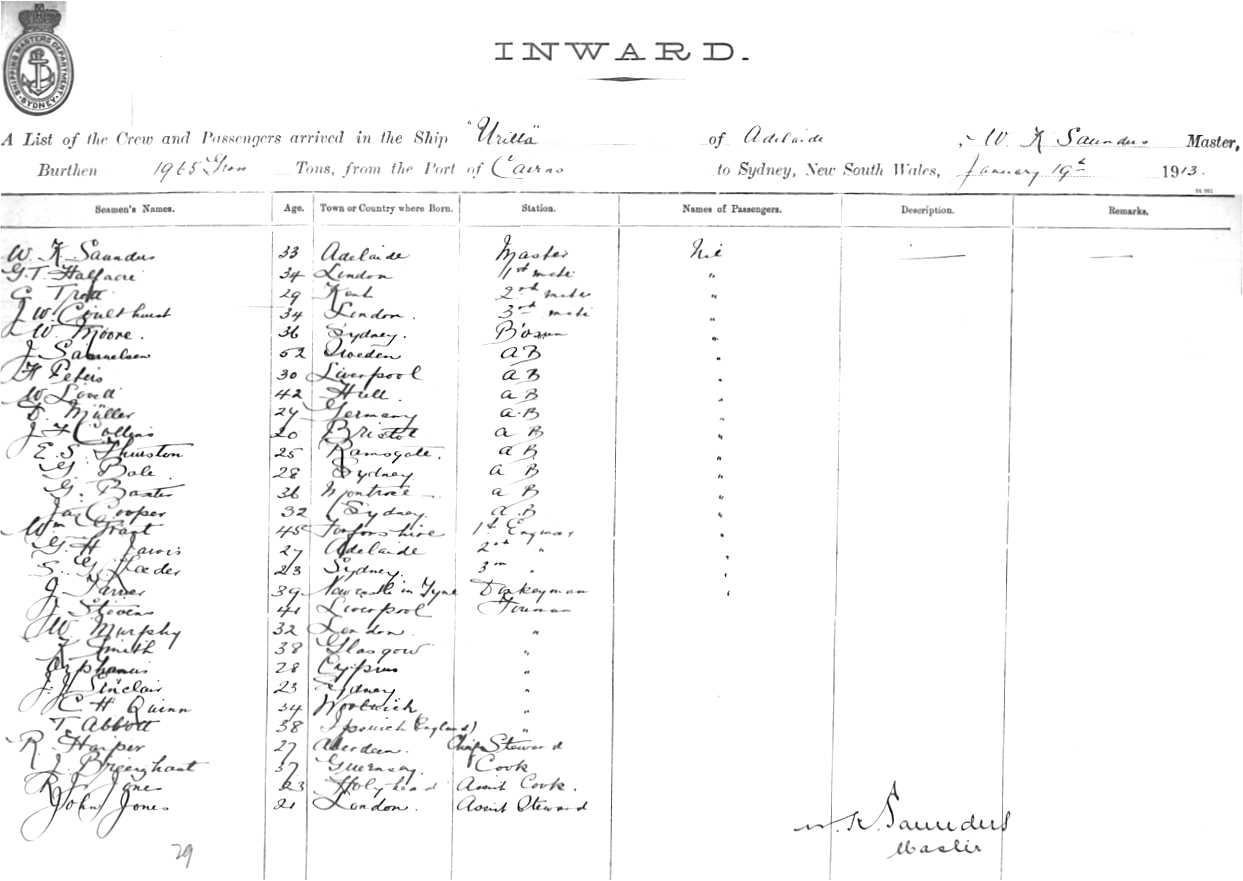 SHIPPING MASTERS DEPARTMENT
SYDNEY
INWARD.
A List of the Crew and Passengers arrived in the Ship "Urilla" of Adelaide, W K Saunders Master,
Burthen 1965 Tons, from the Port of Cairns to Sydney, New South Wales, January 19th 1913.
Seamen's Names. Age. Town or Country where Born. Station. Names of Passengers. Description. Remarks.
W. K Saunders 33 Adelaide Master Nil — —
G. T. Halfacre 34 London 1st mate "
C Trott 29 Kent 2nd mate "
J W. Coulthurst 34 London. 3rd mate "
W. Moore. 36 Sydney. Bosun "
J Samuelsen 52 Sweden A B "
H Peters 30 Liverpool A B "
W Lovell 42 Hull. A B "
D. Müller 24 Germany A.B "
J F Collins 20 Bristol A B "
E. S. Thurston 25 Ramsgate. A B "
G. Bale. 28 Sydney A B "
G. Baxter 36 Montrose A B "
Jas Cooper 32 Sydney A.B "
Wm Grant 45 Forfarshire 1st "
G. H. Jarvis 27 Adelaide 2nd " "
S. G. 23 Sydney. 3rd " "
J. 39 Newcastle on Tyne Donkeyman "
J Stevens 41 Liverpool Fireman
W. Murphy 32 London. "
Smith 38 Glasgow "
28 Cyprus "
J. Sinclair 23 Sydney "
C H Quinn 34 Woolwich "
T. Abbott 38 Ipswich (England) "
R. Harper 27 Aberdeen. Chief Steward
37 Guernsey. Cook
R J Jones 23 Holyhead Assist Cook.
John Jones 21 London. Assist Steward
W. K. Saunders
Master
29